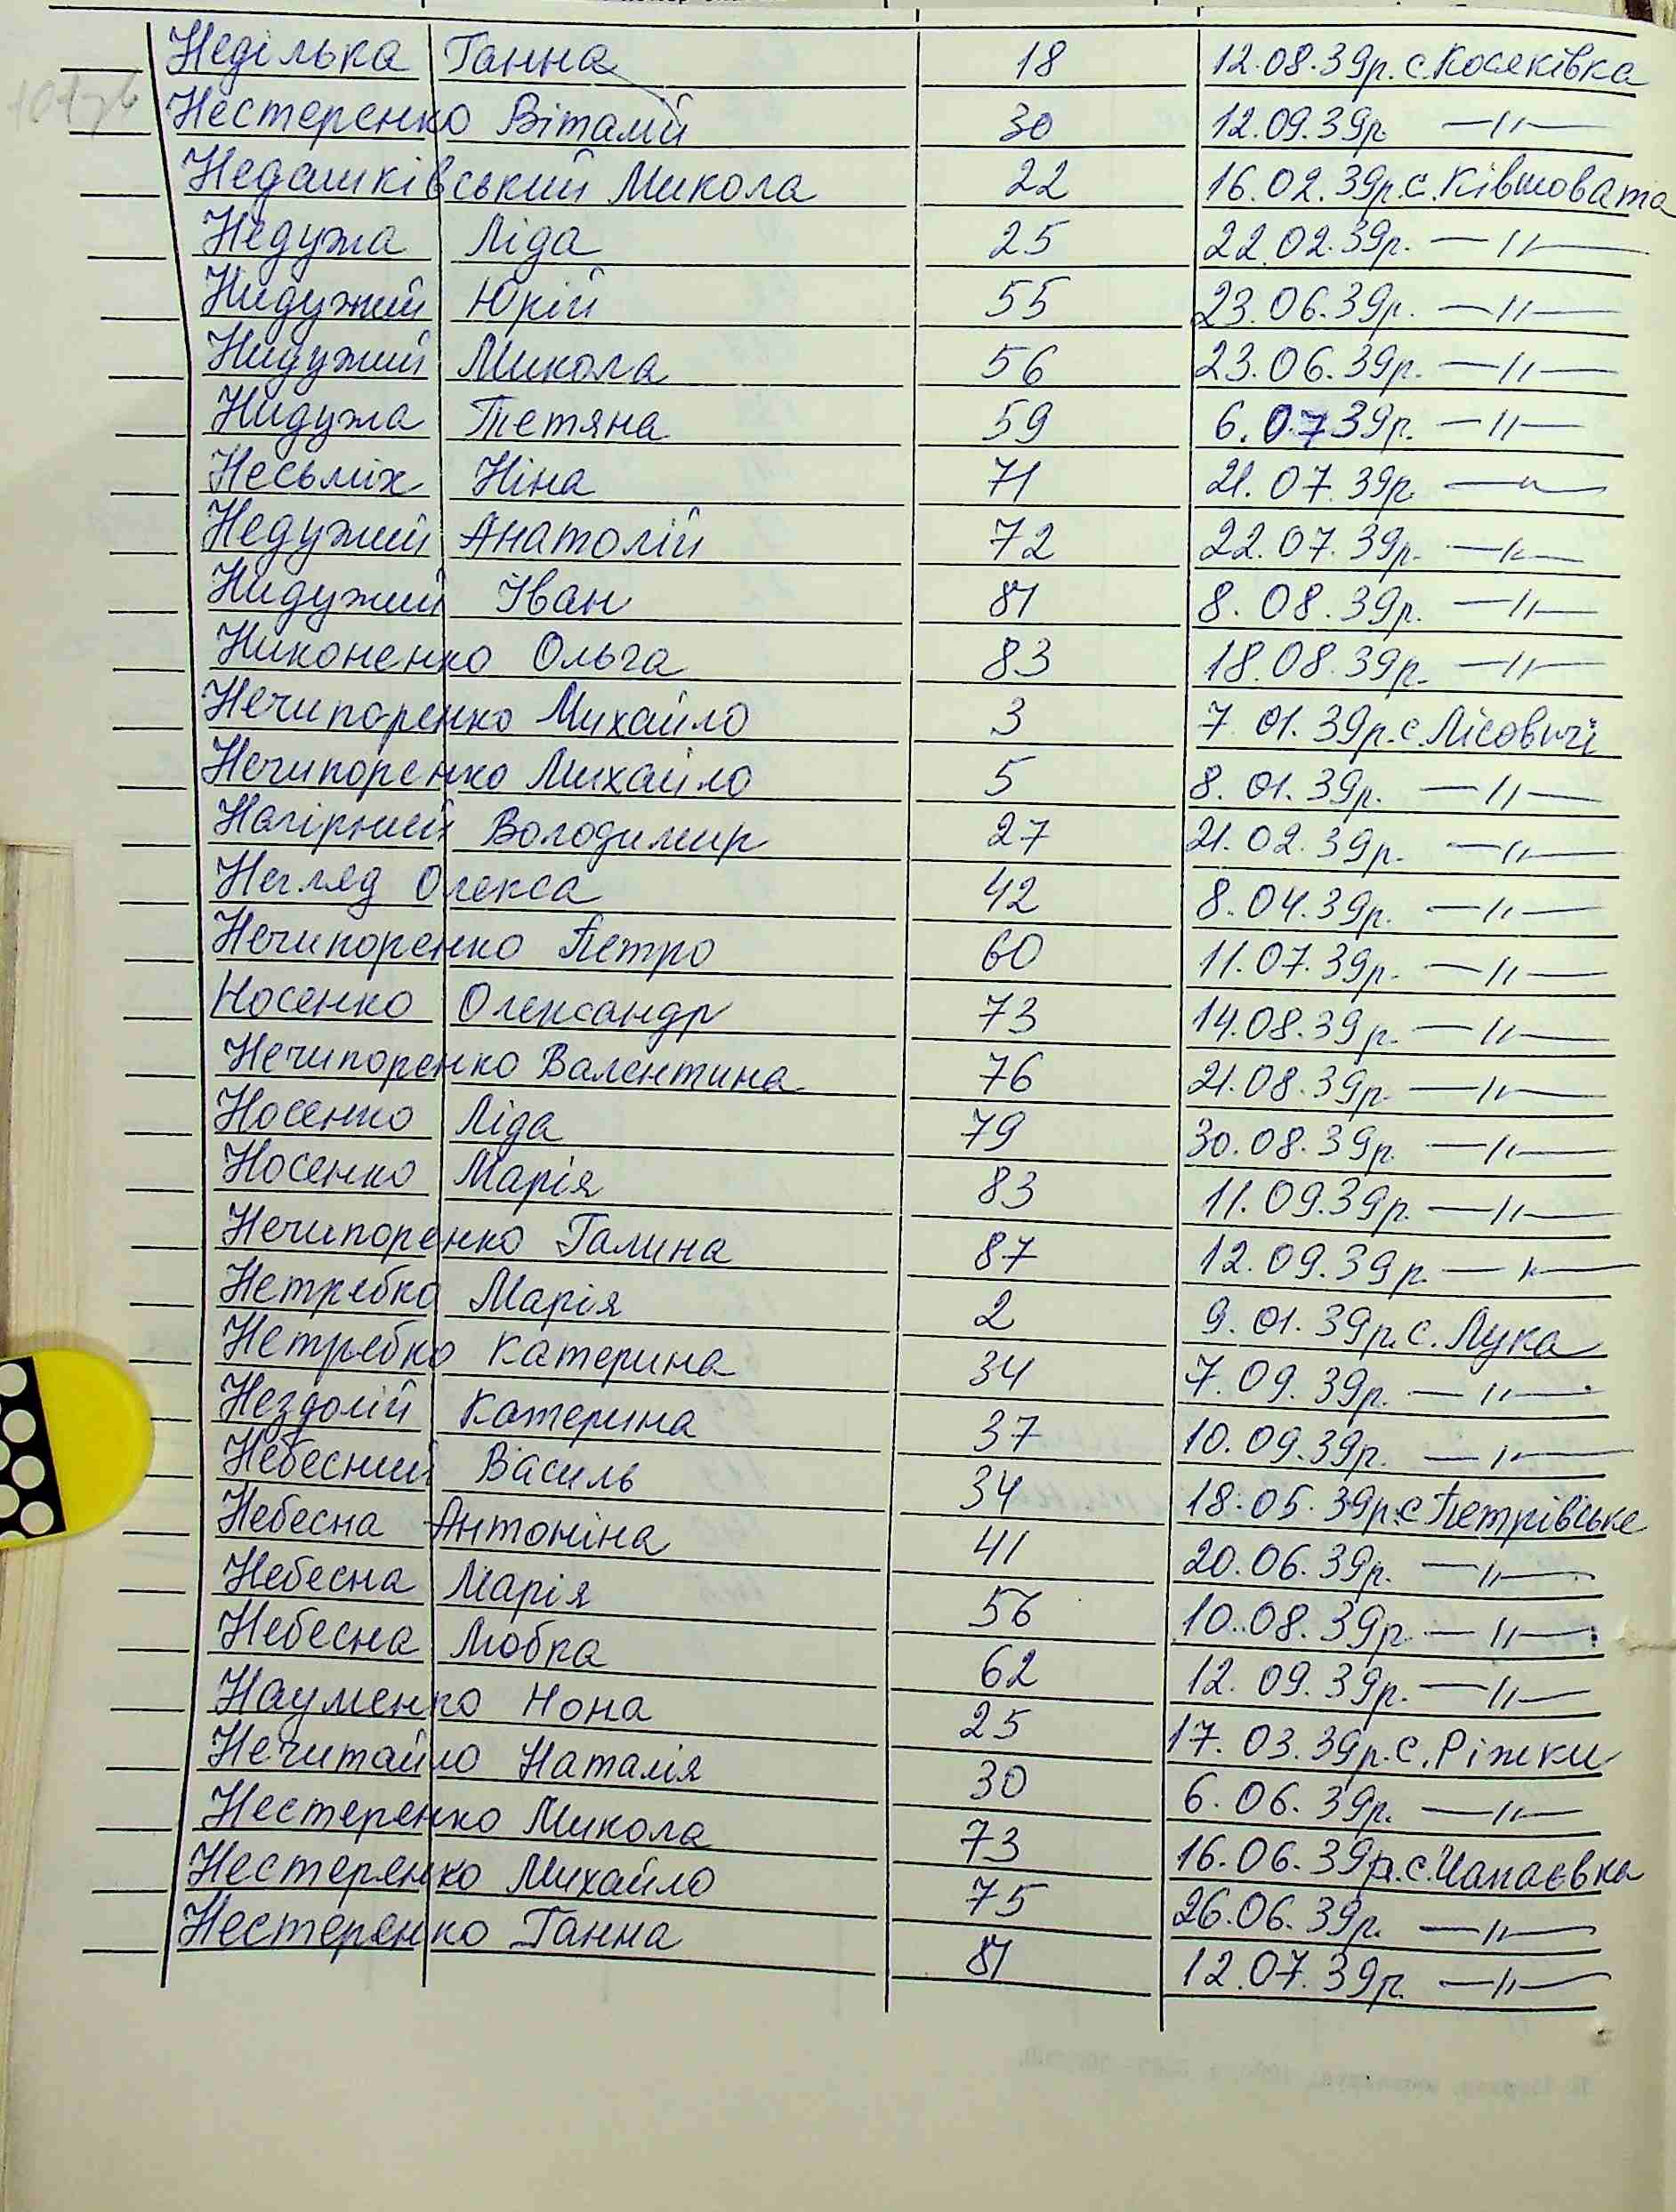 Неділька Ганна 18 12.08.39р. с.Косяківка
Нестеренко Віталій 30 12.09.39р. —//—
Недашківський Микола 22 16.02.39р.с.Ківшовата
Недужа Ліда 25 22.02.39р. —//—
Нидужий Юрій 55 23.06.39р. —//—
Нидужий Микола 56 23.06.39р. —//—
Нидужа Тетяна 59 6.07.39р. —//—
Несьміх Ніна 71 21.07.39р. —//—
Недужий Анатолій 72 22.07.39р. —//—
Нидужий Іван 81 8.08.39р. —//—
Никоненко Ольга 83 18.08.39р. —//—
Нечипоренко Михайло 3 7.01.39р.с.Лісовичі
Нечипоренко Михайло 5 8.01.39р. —//—
Нагірний Володимир 27 21.02.39р. —//—
Негляд Олекса 42 8.04.39р. —//—
Нечипоренко Петро 60 11.07.39р. —//—
Носенко Олександр 73 14.08.39р. —//—
Нечипоренко Валентина 76 21.08.39р. —//—
Носенко Ліда 79 30.08.39р. —//—
Носенко Марія 83 11.09.39р. —//—
Нечипоренко Галина 87 12.09.39р. —//—
Нетребко Марія 2 9.01.39р.с.Лука
Нетребко Катерина 34 7.09.39р. —//—
Нездолій Катерина 37 10.09.39р. —//—
Небесний Василь 34 18.05.39р.с Петрівське
Небесна Антоніна 41 20.06.39р. —//—
Небесна Марія 56 10.08.39р. —//—
Небесна Любка 62 12.09.39р. —//—
Науменко Нона 25 17.03.39р.с.Ріжки
Нечитайло Наталія 30 6.06.39р. —//—
Нестеренко Микола 73 16.06.39р.с.Чапаєвка
Нестеренко Михайло 75 26.06.39р. —//—
Нестеренко Ганна 81 12.07.39р. —//—